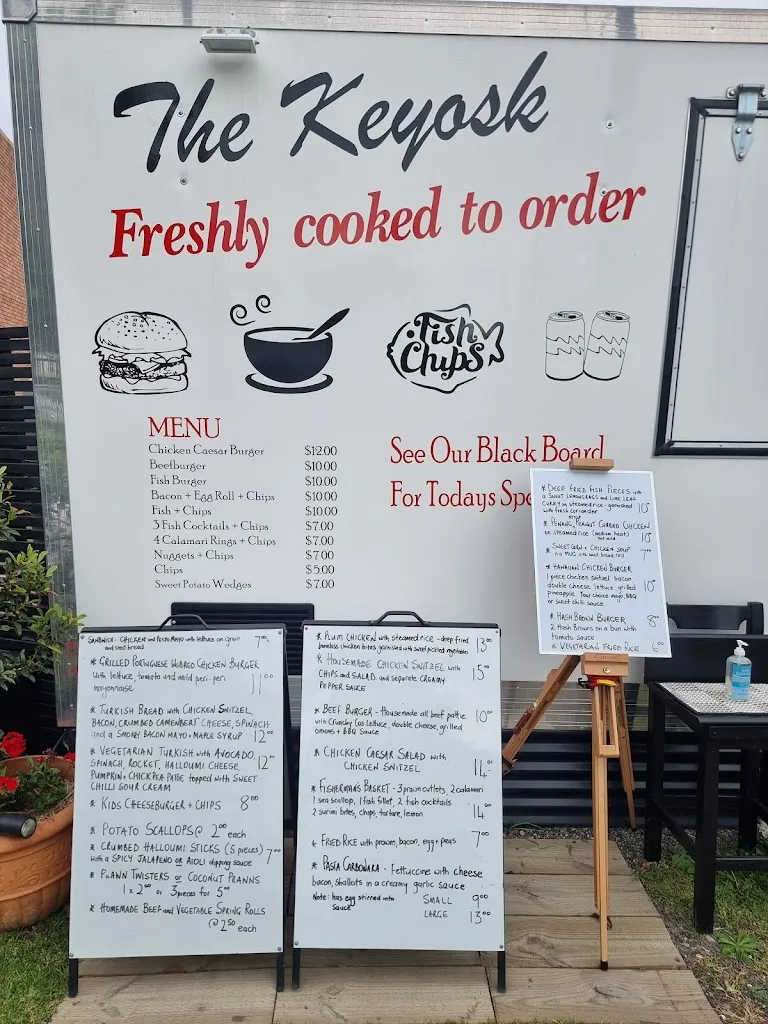 The Keyosk
Freshly cooked to order
Fish
Chips
MENU
Chicken Caesar Burger $12.00
Beefburger $10.00
Fish Burger $10.00
Bacon + Egg Roll + Chips $10.00
Fish + Chips $10.00
3 Fish Cocktails + Chips $7.00
4 Calamari Rings + Chips $7.00
Nuggets + Chips $7.00
Chips $5.00
Sweet Potato Wedges $7.00
See Our Black Board
For Todays Spe
* DEEP FRIED FISH PIECES with
a SWEET LEMONGRASS and LIME LEAF
CURRY on steamed rice - garnished
with fresh coriander 10⁰⁰
* PENANG PEANUT CURRIED CHICKEN
on steamed rice (medium heat)
not mild 10⁰⁰
* SWEETCORN + CHICKEN SOUP
no MSG with bread roll 7⁰⁰
* HAWAIIAN CHICKEN BURGER
1 piece chicken snitzel, bacon,
double cheese, lettuce, grilled 10⁰⁰
pineapple. Your choice mayo, BBQ
or sweet chili sauce
* HASH BROWN BURGER 8⁰⁰
2 Hash Browns on a bun with
tomato sauce
* VEGETARIAN FRIED RICE 6⁰⁰
SANDWICH - CHICKEN and PESTO MAYO with lettuce on grain 7⁰⁰
and seed bread
* GRILLED PORTUGUESE INSPIRED CHICKEN BURGER
with lettuce, tomato and mild peri-peri
mayonnaise 11⁰⁰
* TURKISH BREAD with CHICKEN SNITZEL,
BACON, CRUMBED CAMENBERT CHEESE, SPINACH
and a SMOKEY BACON MAYO + MAPLE SYRUP 12⁰⁰
* VEGETARIAN TURKISH with AVOCADO,
SPINACH, ROCKET, HALLOUMI CHEESE, 12⁰⁰
PUMPKIN + CHICKPEA PATTIE topped with SWEET
CHILLI SOUR CREAM
* KIDS CHEESEBURGER + CHIPS 8⁰⁰
* POTATO SCALLOPS @ 2⁰⁰ each
* CRUMBED HALLOUMI STICKS (5 pieces) 7⁰⁰
with a SPICY JALAPENO or AIOLI dipping sauce
* PRAWN TWISTERS or COCONUT PRAWNS
1 x 2⁰⁰ or 3 pieces for 5⁰⁰
* HOMEMADE BEEF and VEGETABLE SPRING ROLLS
@ 2⁵⁰ each
* PLUM CHICKEN with steamed rice - deep fried 13⁰⁰
boneless chicken bites garnished with sweet pickled vegetables
* HOUSEMADE CHICKEN SNITZEL with
CHIPS and SALAD and separate CREAMY 15⁰⁰
PEPPER SAUCE
* BEEF BURGER - Housemade all beef pattie 10⁰⁰
with Crunchy Cos Lettuce, double cheese, grilled
onions + BBQ Sauce
* CHICKEN CAESAR SALAD with
CHICKEN SNITZEL 14⁰⁰
* FISHERMAN'S BASKET - 3 prawn cutlets, 2 calamari
1 sea scallop, 1 fish fillet, 2 fish cocktails 14⁰⁰
2 surimi bites, chips, tartare, lemon
* FRIED RICE with prawns, bacon, egg + peas 7⁰⁰
* PASTA CARBONARA - Fettuccine with cheese
bacon, shallots in a creamy garlic sauce
Note: has egg stirred into SMALL 9⁰⁰
sauce LARGE 13⁰⁰